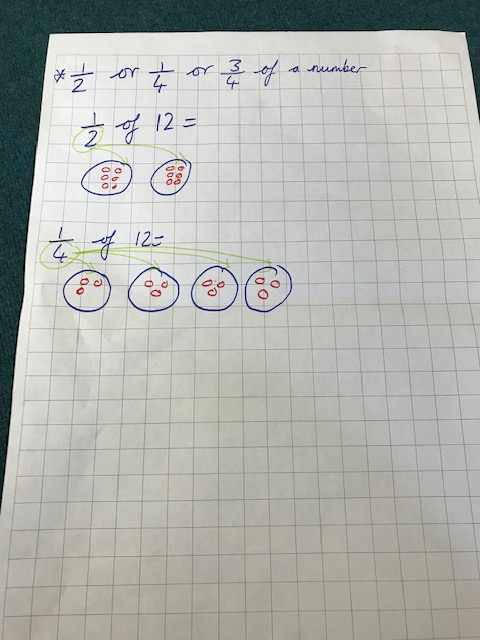 * 1/2 or 1/4 or 3/4 of a number
1/2 of 12 =
1/4 of 12=